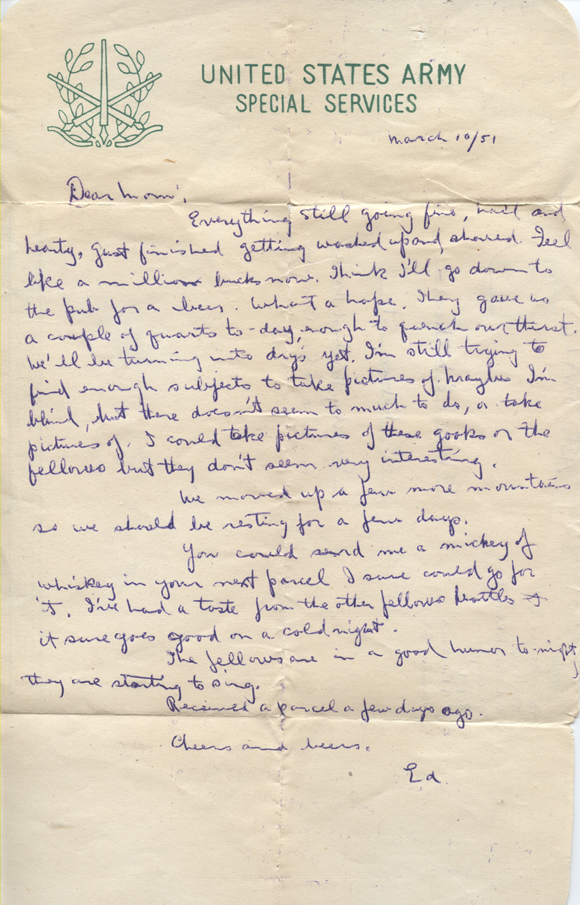 UNITED STATES ARMY
SPECIAL SERVICES
March 10/51
Dear Mom,
Everything still going fine, hail and
hearty, just finished getting washed up and shaved. Feel
like a million bucks now. Think I'll go down to
the pub for a beer. What a hope. They gave us
a couple of quarts to-day, enough to quench our thirst.
We'll be turning into dry's yet. I'm still trying to
find enough subjects to take pictures of. Maybe I'm
blind, but there doesn't seem to much to do, or take
pictures of. I could take pictures of these gooks or the
fellows but they don't seem very interesting.
We moved up a few more mountains
so we should be resting for a few days.
You could send me a mickey of
whiskey in your next parcel I sure could go for
it. I've had a taste from the other fellows bottles &
it sure goes good on a cold night.
The fellows are in a good humor to-night,
they are starting to sing.
Received a parcel a few days ago.
Cheers and beers.
Ed.